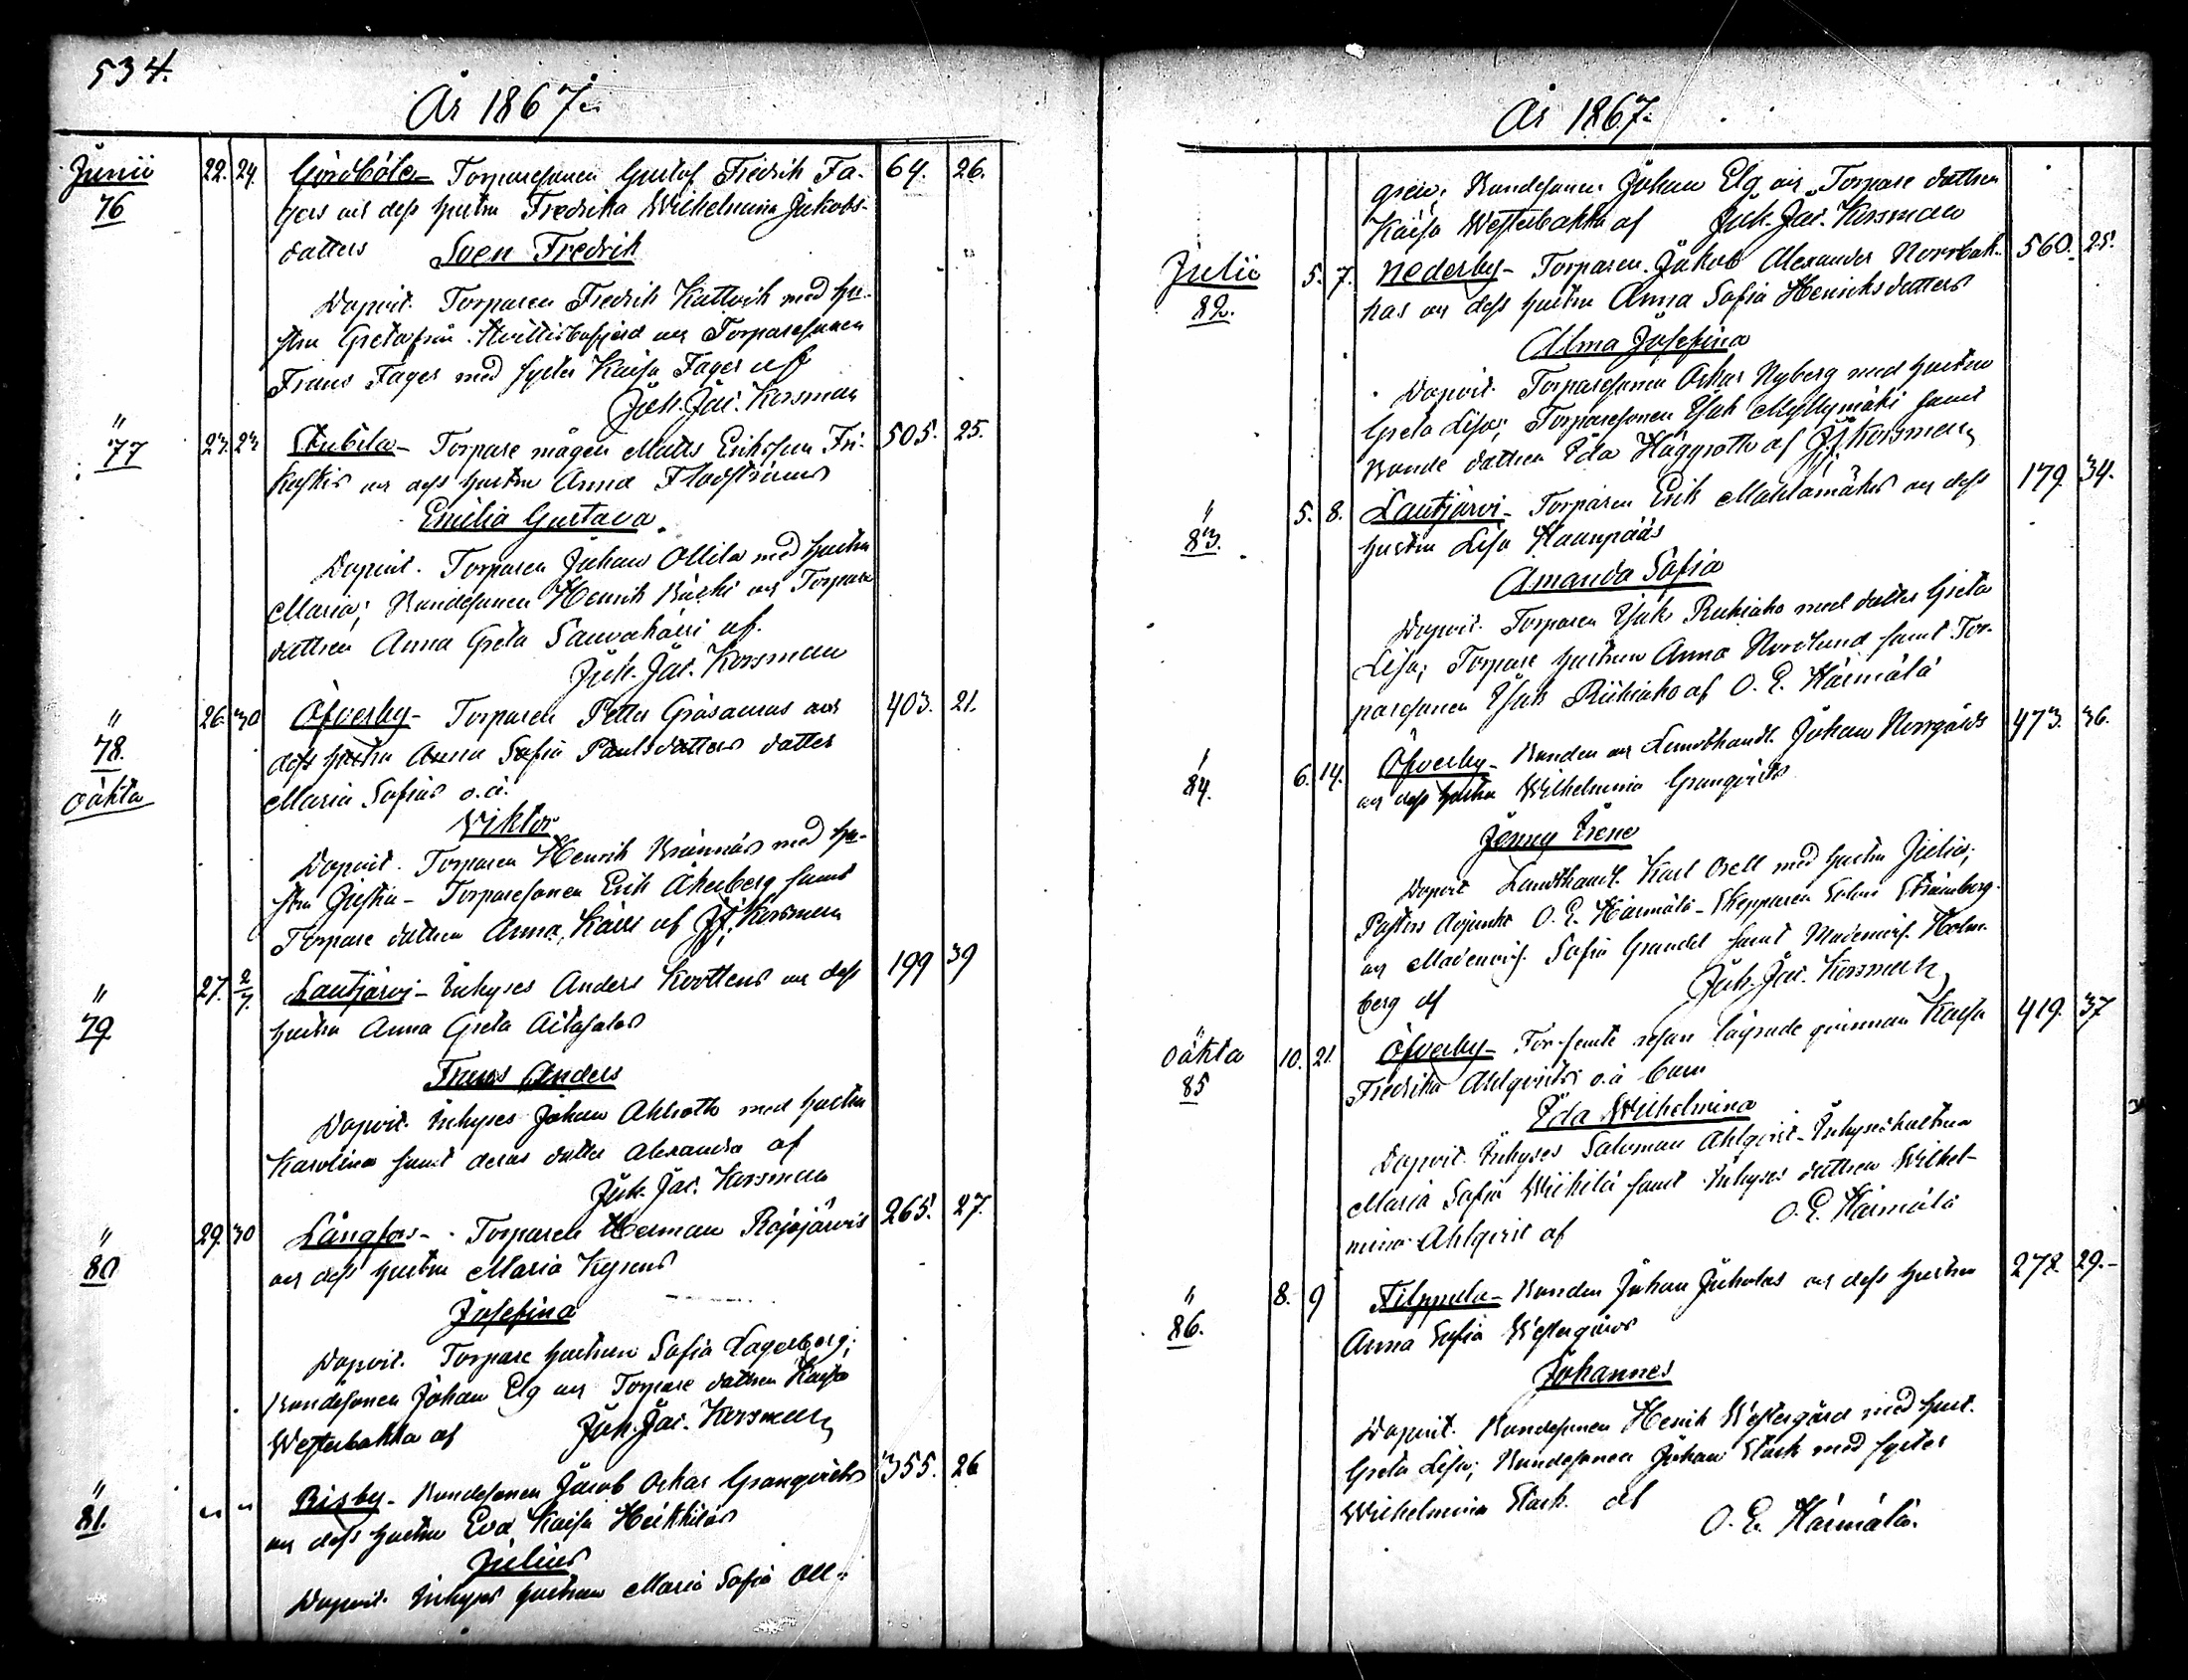 534.
År 1867.
Junii 22. 24. Gördböle - Torparesonen Gustaf Fredrik Fa- 64. 26.
76 gers och dess hustru Fredrika Wilhelmina Jakobs-
datters Sven Fredrik
Dopvit. Torparen Fredrik Kattvik med hu-
stru Greta från och Torparesonen
Frans Fager med syster Kaisa Fager af
Joh. Jac. Korsman
" 77 23. 23 Stubila - Torpare mågen Matts Eriksson Fri- 505. 25.
kaskis och dess hustru Anna Flodströms
Emilia Gustava.
Dopvit. Torparen Johan Ollila med hustru
Maria; Bondesonen Henrik och Torpare
dattren Anna Greta af.
Joh. Jac. Korsman
" 26. 30 Öfverby - Torparen Petter och 403. 21.
78. dess hustru Anna Sofia Paulsdatters datter
oäkta Maria Sofias o.ä.
Viktor
Dopvit. Torparen Henrik Brännäs med hu-
stru Justa - Torparesonen Erik Åkerberg samt
Torpare dattren Anna Kåll af J.J. Korsman
" 27. 2/7. Lautjärvi - Inhyses Anders och dess 199 39
79 hustru Anna Greta Aitasalos
Frans Anders
Dopvit. Inhyses Johan Ahlroth med hustru
Karolina samt deras datter Alexandra af
Joh. Jac. Korsman
" 29. 30 Långfors - Torparen Herman Rajajärvis 265. 27.
80 och dess hustru Maria
Josefina
Dopvit. Torpare hustrun Sofia Lagerberg;
Bondesonen Johan Elg och Torpare dattren Kaisa
Westerbakka af Joh. Jac. Korsman
" " " Bisby - Bondesonen Jacob Oskar Granqvists 355. 26
81. och dess hustru Eva Kaisa Heikkiläs
Julius
Dopvit. Inhyses hustrun Maria Sofia All-
År 1867.
gren; Bondesonen Johan Elg och Torpare dattren
Kaisa Westerbakka af Joh. Jac. Korsman
Julii 5. 7. Nederby - Torparen Jakob Alexander Norrbak- 560. 25.
82. kas och dess hustru Anna Sofia Henriksdatters
Alma Josefina
Dopvit. Torparesonen Oskar Nyberg med hustru
Greta Lisa; Torparesonen Isak Myllymäki samt
Bonde dattren Ida Häggroth af J.J. Korsman
" 5. 8. Lautjärvi - Torparen Erik och dess 179. 34.
83. hustru Lisa Haanpääs
Amanda Sofia
Dopvit. Torparen Isak Riihiaho med datter Greta
Lisa; Torpare hustrun Anna Nordlund samt Tor-
paresonen Isak Riihiaho af O. E. Härmälä
" 6. 14. Öfverby - Bonden och Landthandl. Johan Norrgårds 473. 36.
84. och dess hustru Wilhelmina Granqvists
Jenny Irene
Dopvit Landthandl. Karl Orell med hustru Julia;
Pastors Adjunkt O. E. Härmälä - Skepparen Strömberg
och Mademois. Sofia Grundel samt Mademois. Holm-
berg af Joh. Jac. Korsman
" 10. 21. Öfverby - För femte resan lägrade qvinnan Kaisa 419. 37
oäkta 85 Fredrika Ahlqvists o.ä barn
Ida Wilhelmina
Dopvit. Inhyses Saloman Ahlqvist - Inhyseshustrun
Maria Sofia Wiikilä samt Inhyses dattren Wilhel-
mina Ahlqvist af O. E. Härmälä
" 8. 9 Filppula - Bonden Johan Juholas och dess hustru 278. 29.-
86. Anna Sofia Westergårds
Johannes
Dopvit. Bondesonen Henrik Westergård med hust.
Greta Lisa; Bondesonen Johan Stark med syster
Wilhelmina Stark af
O. E. Härmälä.